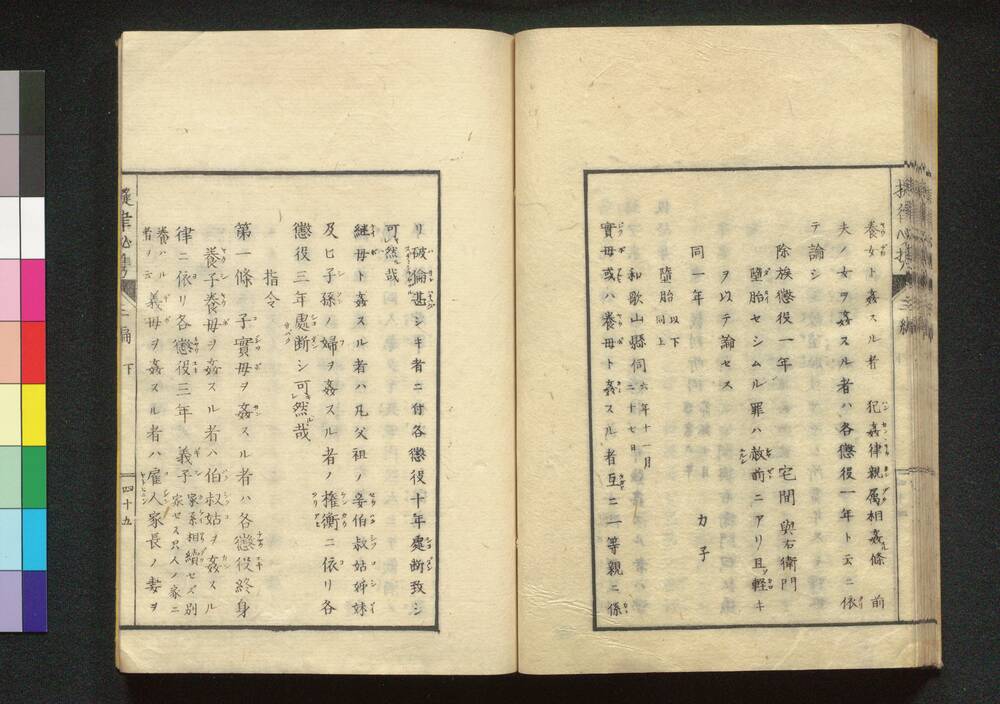 養女ト姦スル者 犯姦律親属相姦條 前
夫ノ女ヲ姦スル者ハ各懲役一年ト云ニ依
テ論シ
除族懲役一年 宅間與右衛門
墮胎セシムル罪ハ赦前ニアリ且輕キ
ヲ以テ論セス
同一年 カ子
和歌山縣伺 六年十一月二十七日
墮胎 以下同上
實母或ハ養母ト姦スル者互ニ一等親ニ係
リ破倫甚シキ者ニ付各懲役十年處断致シ
可然哉
継母ト姦スル者ハ凡父祖ノ妾伯叔姑姉妹
及ヒ子孫ノ婦ヲ姦スル者ノ権衡ニ依リ各
懲役三年處断シ可然哉
指令
第一條 子實母ヲ姦スル者ハ各懲役終身
養子養母ヲ姦スル者ハ伯叔姑ヲ姦スル
律ニ依リ各懲役三年 義子 家系相續セズ別家セス只人ノ家ニ
養ハル者ヲ云 義母ヲ姦スル者ハ雇人家長ノ妻ヲ
二編 下
四十五